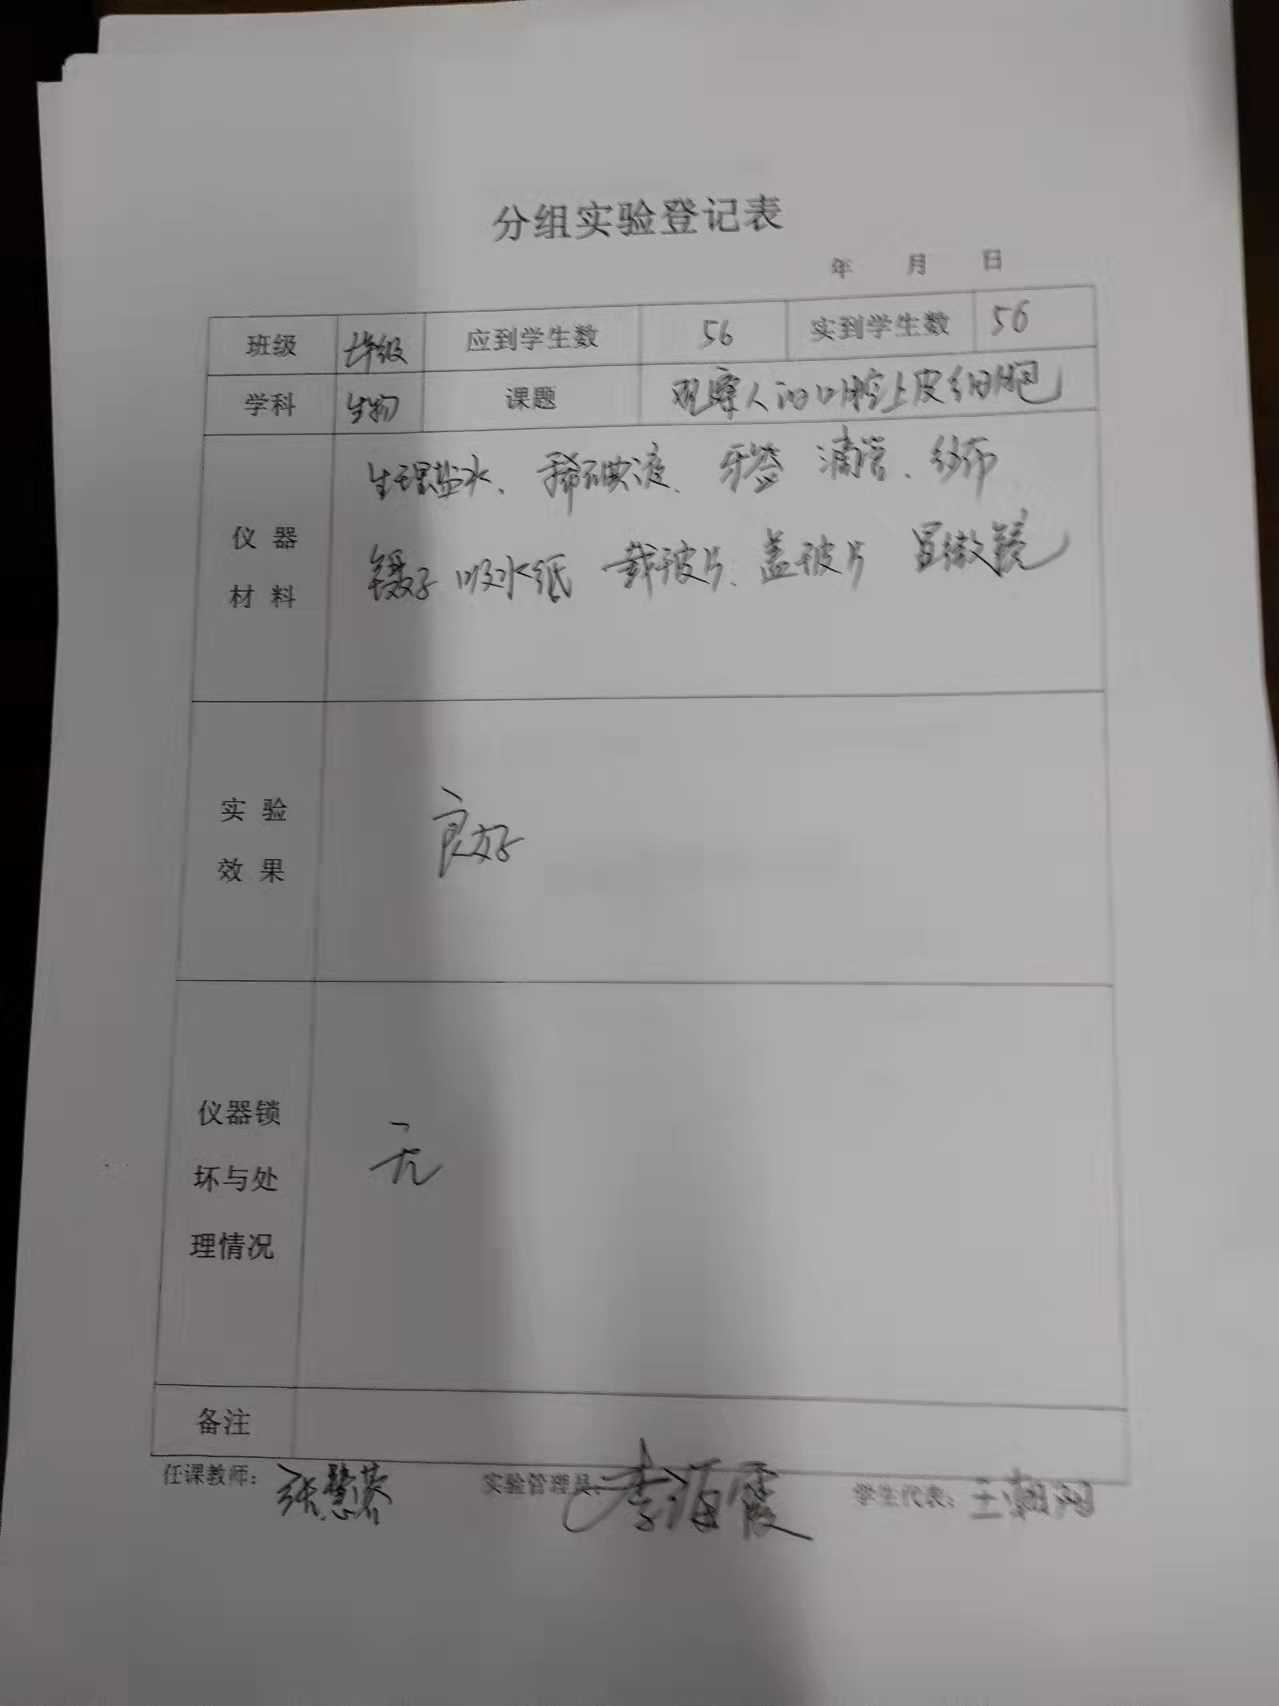 分组实验登记表
年 月 日
班级 七年级 应到学生数 56 实到学生数 56
学科 生物 课题 观察人的口腔上皮细胞
生理盐水、稀碘液、牙签 滴管、纱布
仪器
镊子 吸水纸 载玻片、盖玻片 显微镜
材料
实验
良好
效果
仪器锁
无
坏与处
理情况
备注
任课教师: 张慧 实验管理员: 李海霞 学生代表: 王